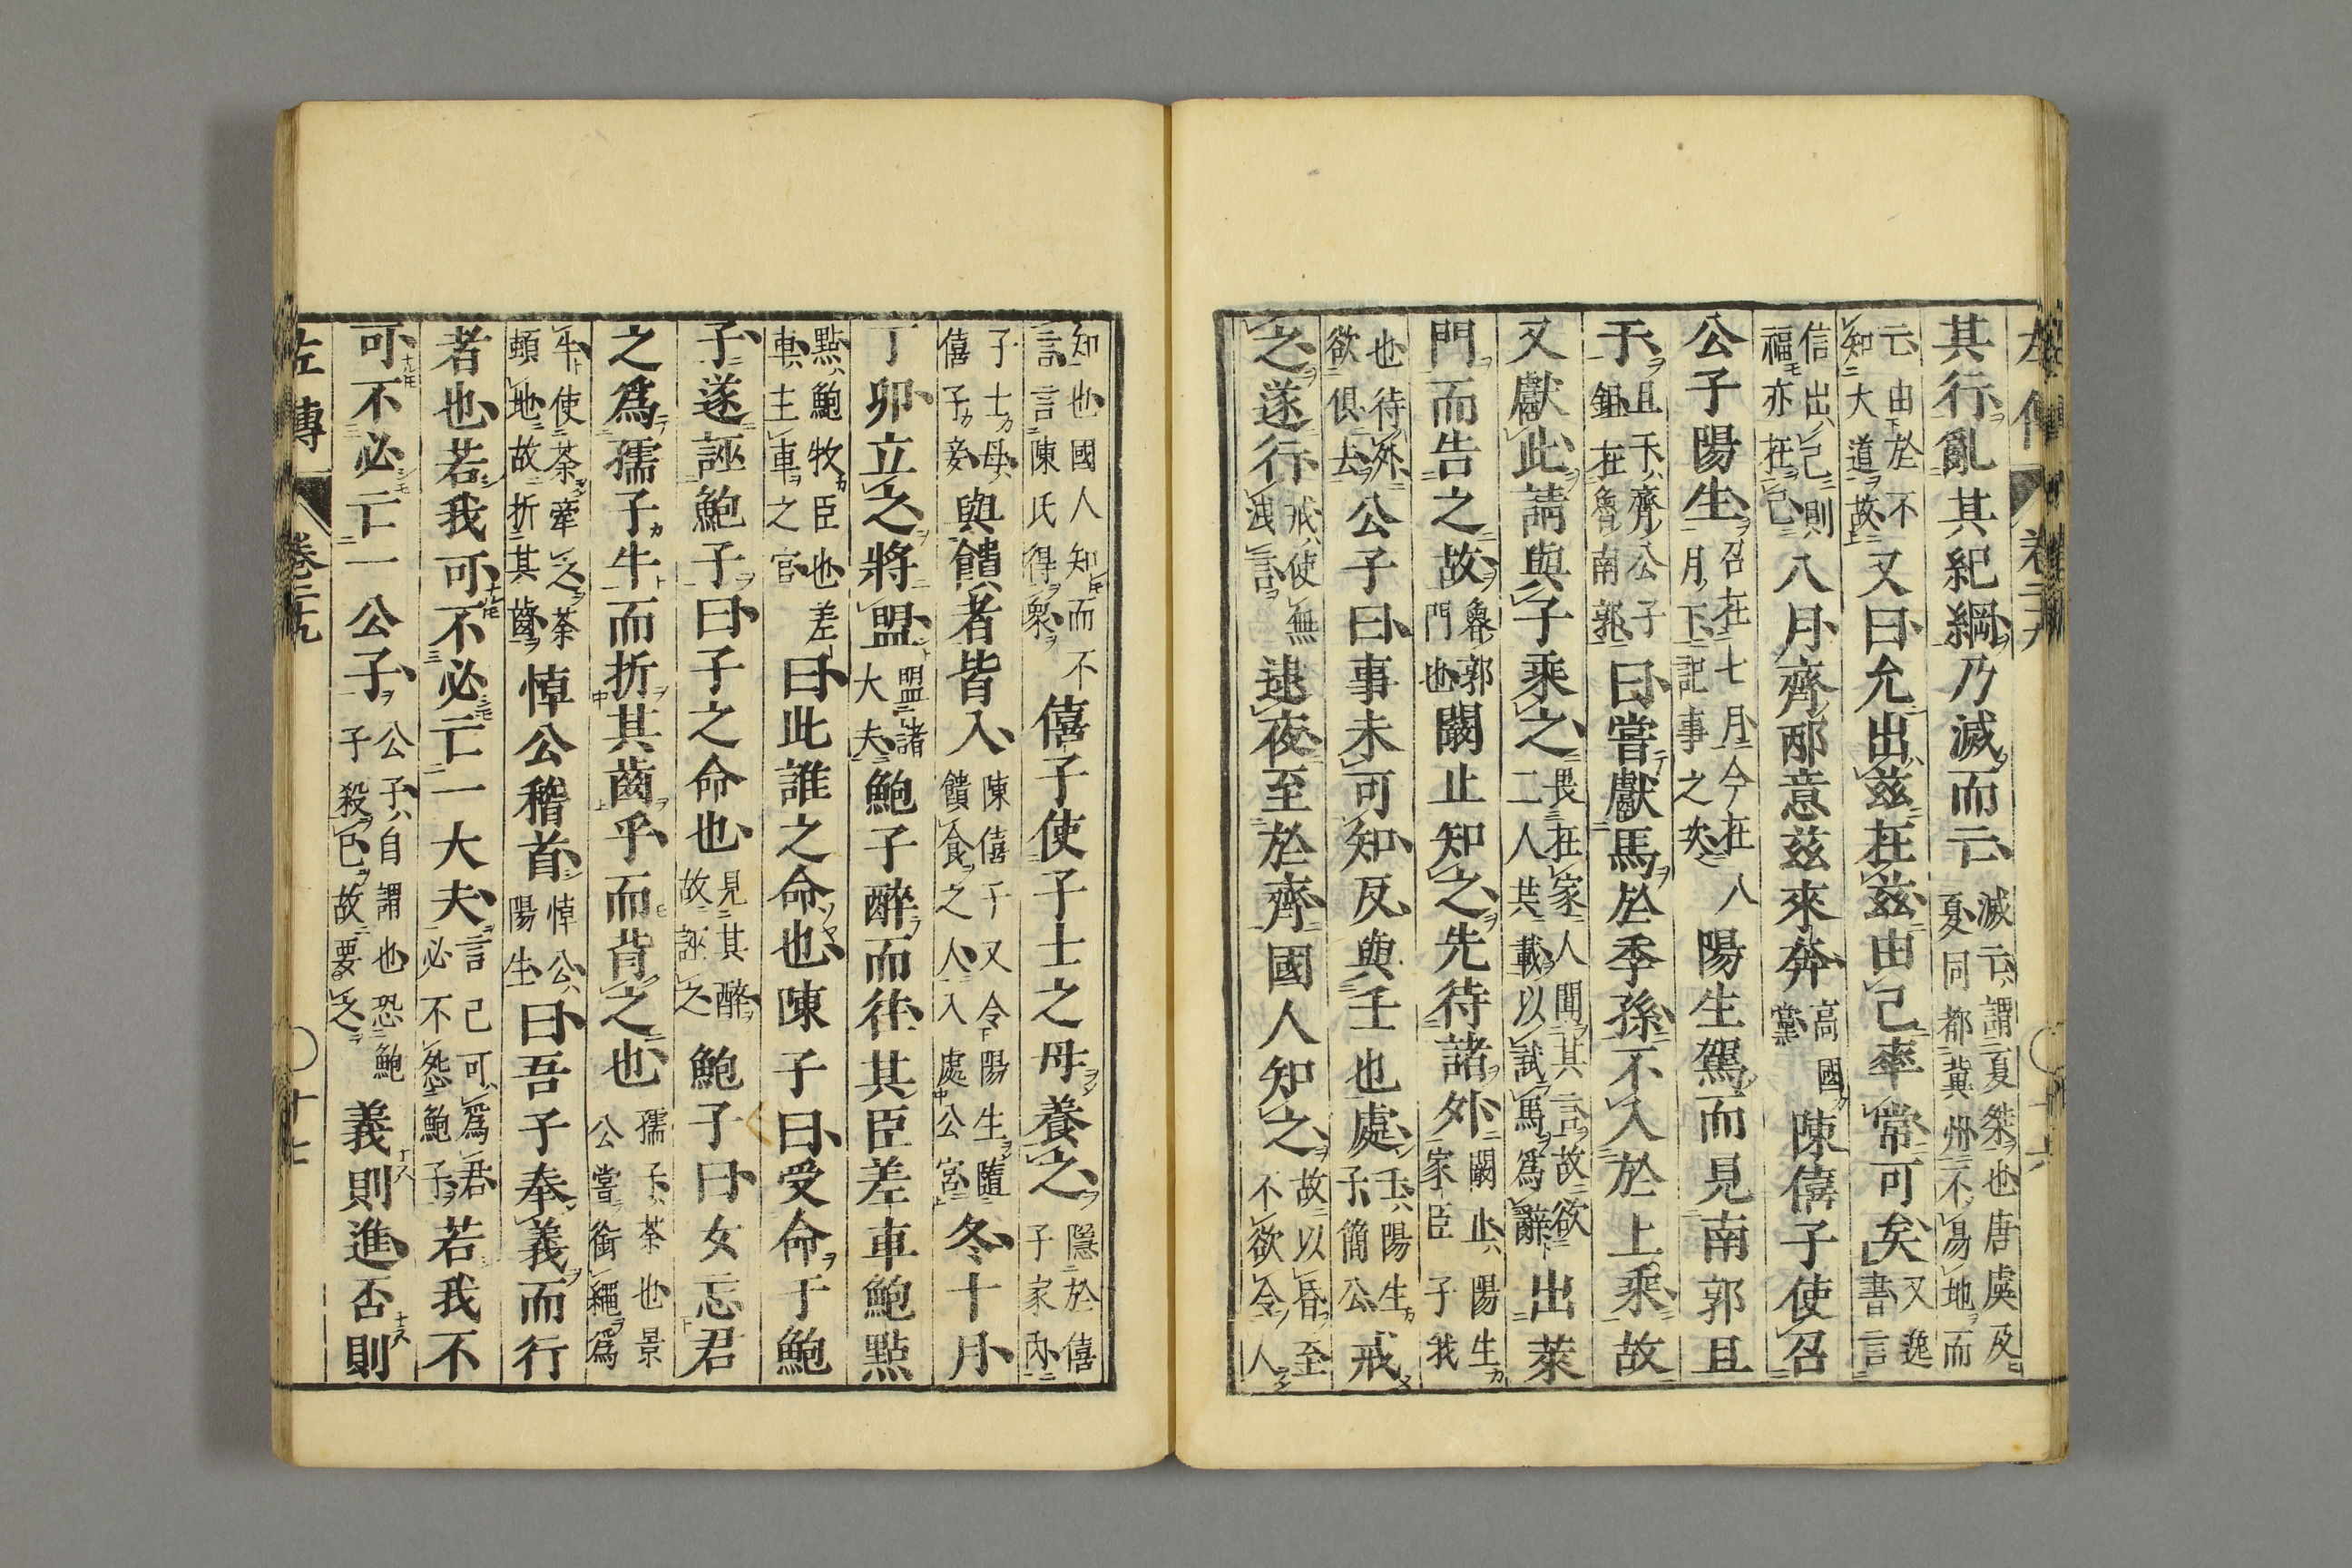 其行亂其紀綱乃滅而亡滅亡謂夏桀也唐虞及夏同都冀州不易地而
亡由於不知大道故又曰允出兹在兹由己率常可矣又逸書言
信出己則福亦在己八月齊邴意兹來奔高國黨陳僖子使召
公子陽生召在七月今在八月下記事之次陽生駕而見南郭且
于且于齊公子鉏在魯南郭曰嘗獻馬於季孫不入於上乘故
又獻此請與子乘之畏在家人聞其言故欲二人共載以試馬爲辭出萊
門而告之故魯郭門也闞止知之先待諸外闞止陽生家臣子我
也待外欲俱去公子曰事未可知反與壬也處壬陽生子簡公戒
之遂行戒使無洩言逮夜至於齊國人知之故以昏至不欲令人
知也國人知而不言言陳氏得衆僖子使子士之母養之隱於僖子家內
子士母僖子妾與饋者皆入陳僖子又令陽生隨饋食之人入處公宮冬十月
丁卯立之將盟盟諸大夫鮑子醉而往其臣差車鮑點
點鮑牧臣也差車主車之官曰此誰之命也陳子曰受命于鮑
子遂誣鮑子曰子之命也見其醉故誣之鮑子曰女忘君
之爲孺子牛而折其齒乎而背之也孺子荼也景公嘗銜繩爲
牛使荼牽之荼頓地故折其齒悼公稽首悼公陽生曰吾子奉義而行
者也若我可不必亡一大夫言己可爲君必不怨鮑子若我不
可不必亡一公子公子自謂也恐鮑子殺己故要之義則進否則
左傳 卷二十九 十七